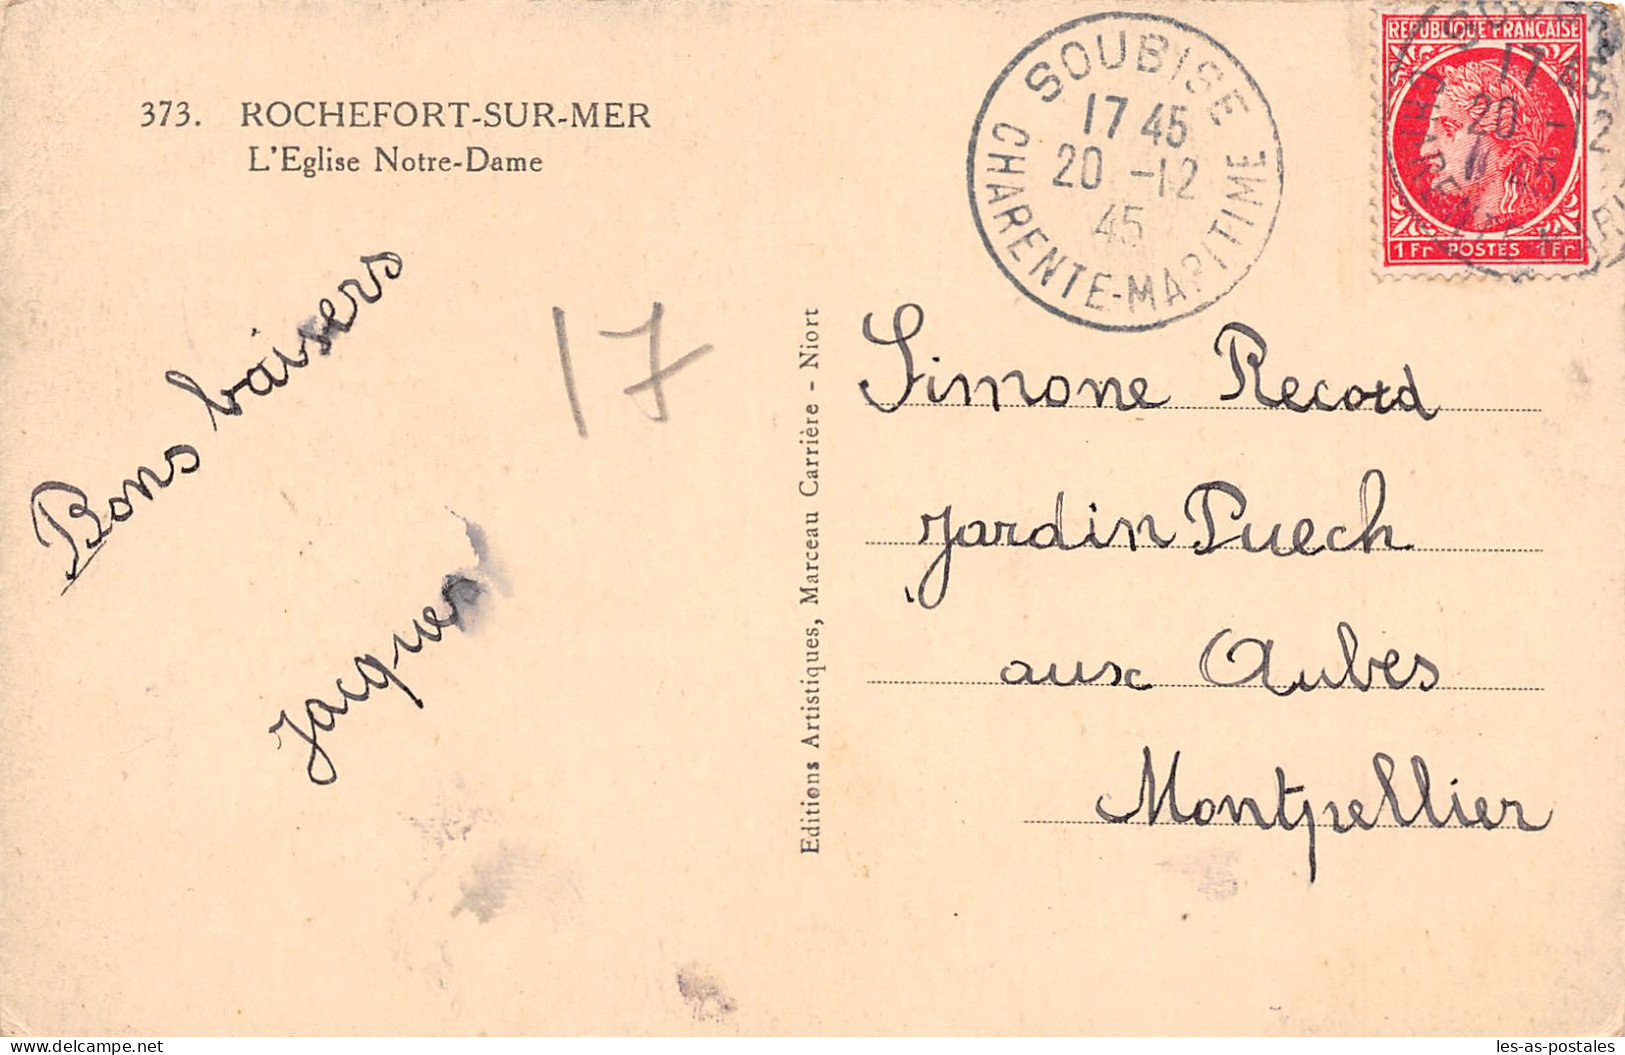 373. ROCHEFORT-SUR-MER
L'Eglise Notre-Dame
Bons baisers
Jacques
17
Editions Artistiques, Marceau Carrière - Niort
SOUBISE
17 45
20 -12
45
CHARENTE-MARITIME
REPUBLIQUE FRANÇAISE
17 45
20 -12
45
1Fr POSTES 1Fr
Simone Record
Jardin Puech
aux Aubes
Montpellier
Delcampe.net
les-as-postales